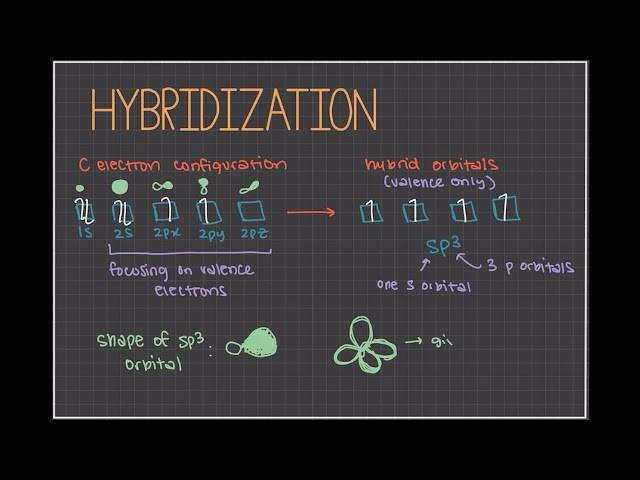 HYBRIDIZATION
C electron configuration
1s 2s 2px 2py 2pz
focusing on valence
electrons
hybrid orbitals
(valence only)
1 1 1 1
sp³
one s orbital
3 p orbitals
shape of sp³
orbital :
→ gi